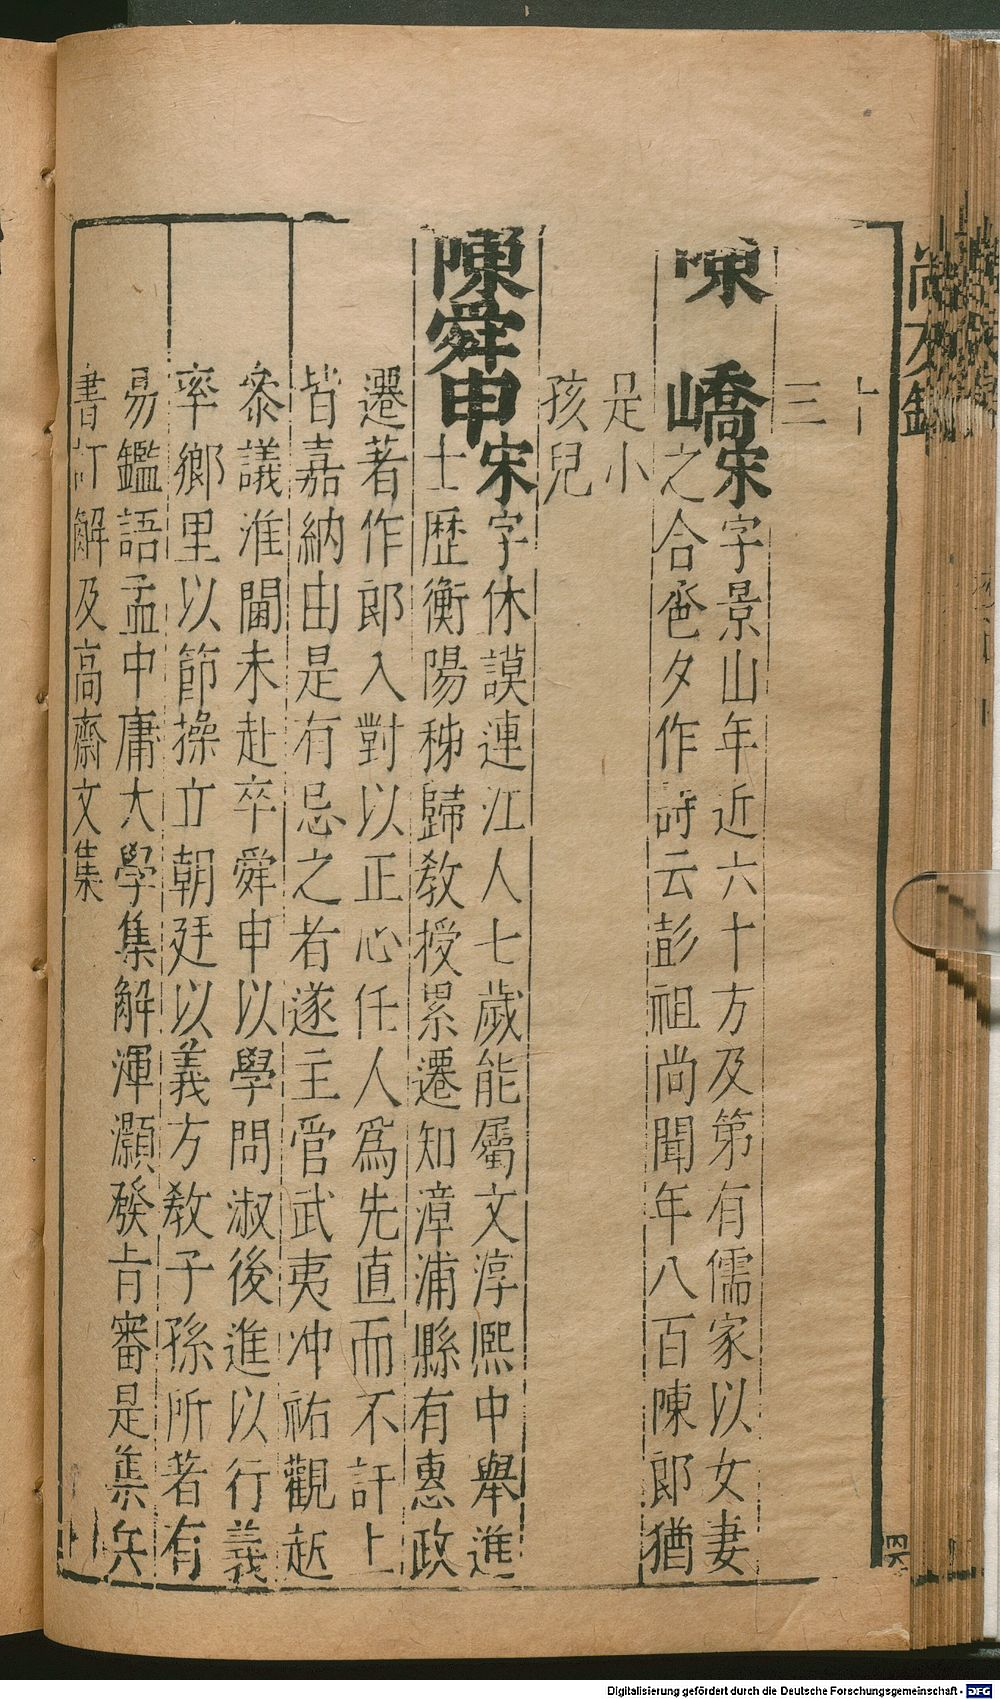 尚友錄
十
三
陳嶠宋字景山年近六十方及第有儒家以女妻
之合卺夕作詩云彭祖尚聞年八百陳郎猶
是小
孩兒
陳舜申宋字休謨連江人七歲能屬文淳熙中舉進
士歷衡陽秭歸教授累遷知漳浦縣有惠政
遷著作郎入對以正心任人爲先直而不訐上
皆嘉納由是有忌之者遂主管武夷冲祐觀起
叅議淮閫未赴卒舜申以學問淑後進以行義
率鄉里以節操立朝廷以義方教子孫所著有
易鑑語孟中庸大學集解渾灝發旨審是集兵
書訂解及高齋文集
Digitalisierung gefördert durch die Deutsche Forschungsgemeinschaft - DFG